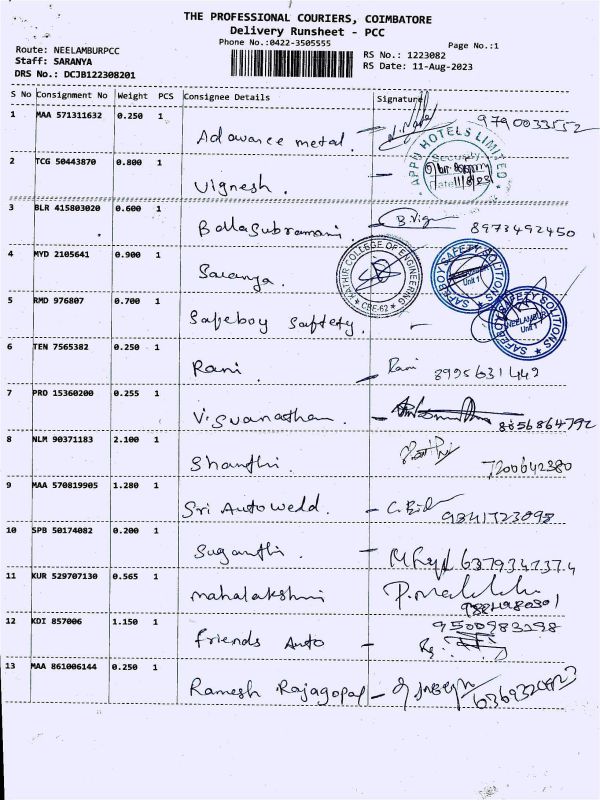 THE PROFESSIONAL COURIERS, COIMBATORE
Delivery Runsheet - PCC
Phone No.:0422-3505555
Page No.:1
Route: NEELAMBURPCC
Staff: SARANYA
DRS No.: DCJB122308201
RS No.: 1223082
RS Date: 11-Aug-2023
S No Consignment No Weight PCS Consignee Details Signature
1 MAA 571311632 0.250 1 Adawance metal. 9790033552
APPU HOTELS LIMITED
SECURITY
Date 11/8/23
2 TCG 50443870 0.800 1 Vignesh.
3 BLR 415803020 0.600 1 BallaSubramani. B.Vig 8973492450
4 MYD 2105641 0.900 1 Saranya.
KATHIR COLLEGE OF ENGINEERING
CBE-62
SAFEBOY SAFETY SOLUTIONS
Unit 1
5 RMD 976807 0.700 1 Safeboy Saftety.
SAFEBOY SAFETY SOLUTIONS
NEELAMBUR
Unit 1
6 TEN 7565382 0.250 1 Rani. Rani 8995631449
7 PRD 15360200 0.255 1 Visvanathan. 8056864792
8 NLM 90371183 2.100 1 Shanthi. 7200642380
9 MAA 570819905 1.280 1 Sri Auto Weld. 9841723098
10 SPB 50174082 0.200 1 Suganthi. 6379347374
11 KUR 529707130 0.565 1 mahalakshmi 9884980301
12 KDI 857006 1.150 1 friends Auto 9500983198
13 MAA 861006144 0.250 1 Ramesh Rajagopal